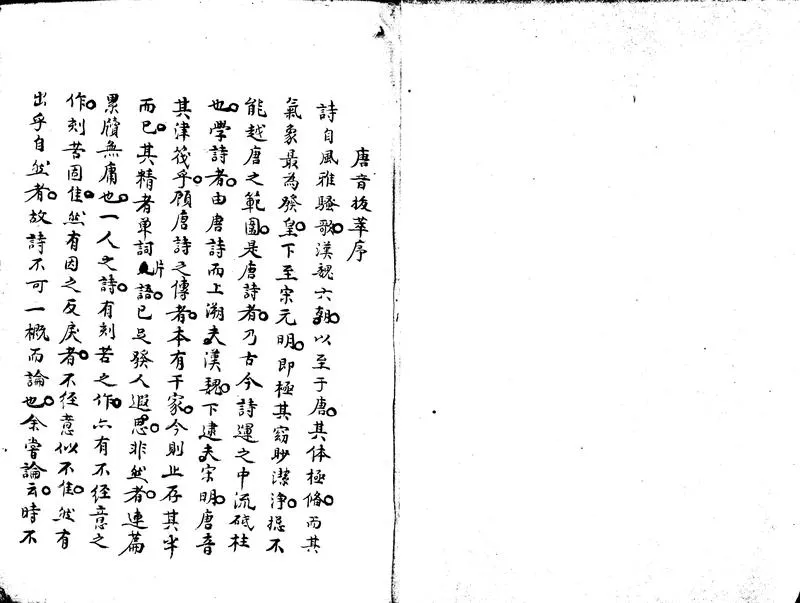 唐音拔萃序
詩自風雅騷歌漢魏六朝。以至于唐。其体極俻。而其
氣象最為發皇。下至宋元明。即極其窈眇潔浄。揔不
能越唐之範圍。是唐詩者。乃古今詩運之中流砥柱
也。學詩者。由唐詩而上溯夫漢魏。下逮夫宋明。唐音
其津筏乎。顧唐詩之傳者。本有千家。今則止存其半
而已。其精者单詞片語。已足發人遐思。非然者。連篇
累牘無庸也。一人之詩。有刻苦之作。亦有不經意之
作。刻苦固佳。然有因之反戾者。不經意似不佳。然有
出乎自然者。故詩不可一概而論也。余嘗論云。時不